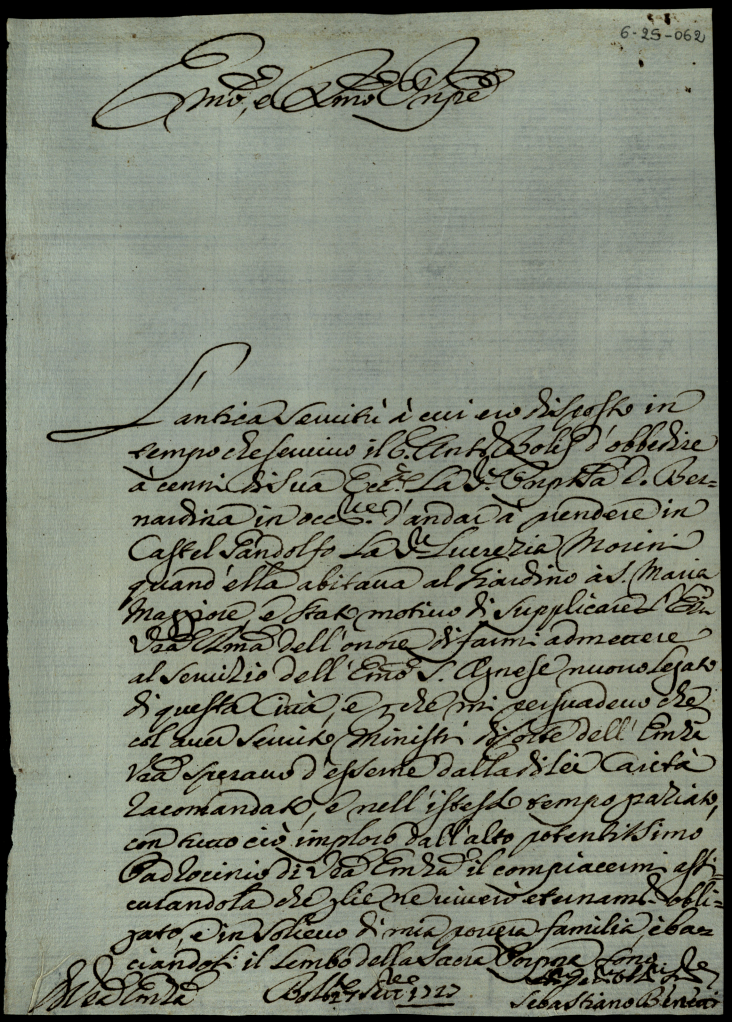 6-25-062
Emo, e Rmo Sig.re
L'antica Servitù à cui ero disposto in
tempo che servivo il C. Ant.o Bol. d'obbedire
à cenni di Sua Ecc.a La d. D. Ber=
nardina in occ.ne d'andar à prendere in
Castel Gandolfo La Lucrezia Morini
quand'ella abitava al Giardino à S. Maria
Maggiore, e stato motivo di Supplicare l'Em.
Vra Rma dell'onore di farmi admettere
al Servizio dell'Emo S. Agnese nuovo Legato
di questa Città, e p. che mi persuadevo che
col aver Servito Ministri di Corte dell'Emza
Vra speravo d'esserne dalla di lei Carità
racomandato, e nell'istesso tempo graziato,
con tutto ciò imploro dall'alto potentissimo
Padrocinio di Vra Emza il compiacermi assi=
curandola che glie ne viverò eternam.e obli=
gato, e in Solievo di mia povera familia, è bac=
ciandoli il Lembo della Sacra Porpora
Di Vra Emza
Bol. 27 1727
Sebastiano